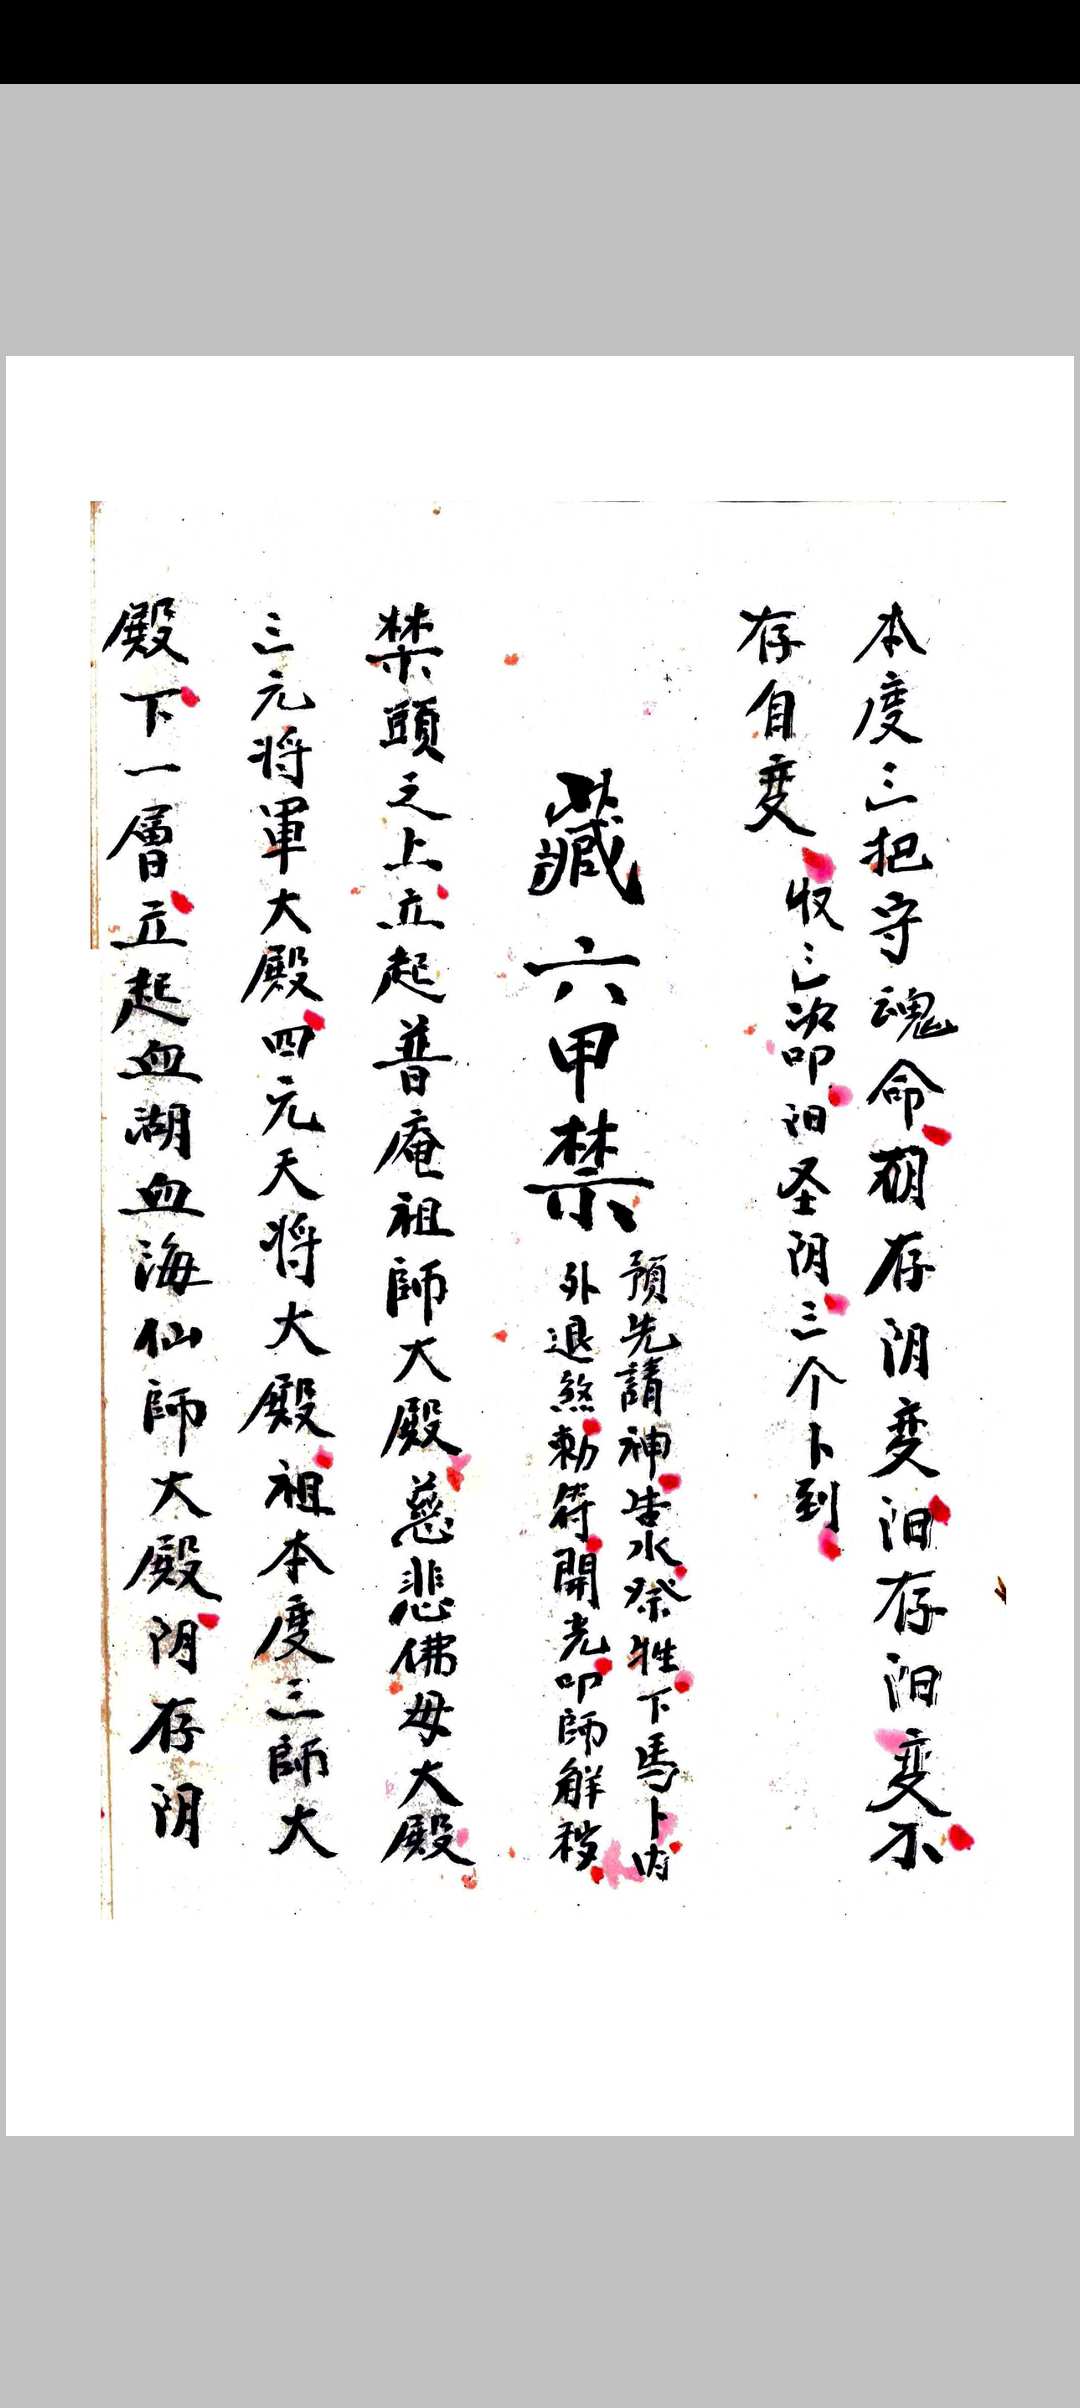 本度三把守魂命朝存阴变阳存阳变不
存自变
收三次叩阳圣阴三个卜到
藏六甲禁
預先請神告水祭牲下馬卜内
外退煞勅符開光叩師解秽
禁頭之上立起普庵祖師大殿慈悲佛母大殿
三元将軍大殿四元天将大殿祖本度三師大
殿下一層立起血湖血海仙師大殿阴存阴